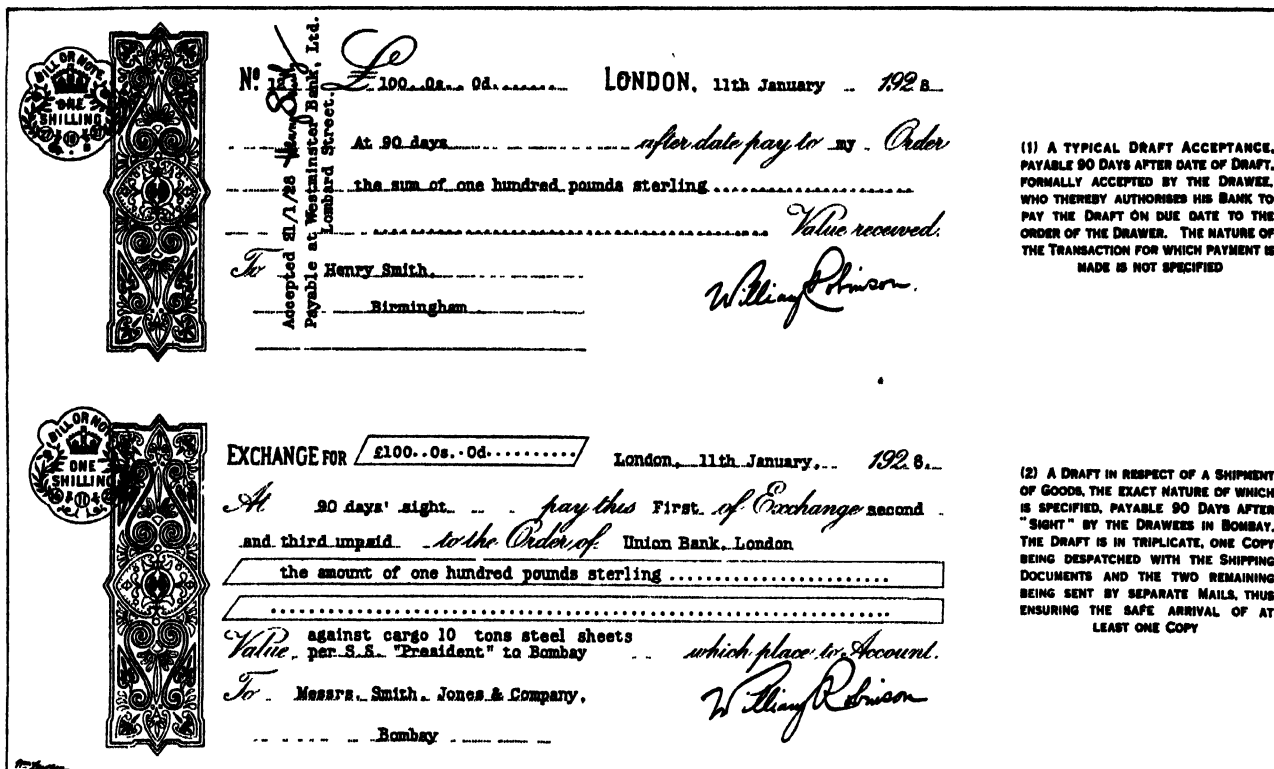 BILL OR NOTE
ONE
SHILLING
Nº
£ 100..0s.. 0d.......
LONDON, 11th January 1928
Accepted 21/1/28 Henry Smith
Payable at Westminster Bank, Ltd.
Lombard Street.
At 90 days after date pay to my Order
the sum of one hundred pounds sterling
Value received.
To Henry Smith.
Birmingham
William Robinson.
(1) A TYPICAL DRAFT ACCEPTANCE,
PAYABLE 90 DAYS AFTER DATE OF DRAFT,
FORMALLY ACCEPTED BY THE DRAWEE,
WHO THEREBY AUTHORISES HIS BANK TO
PAY THE DRAFT ON DUE DATE TO THE
ORDER OF THE DRAWER. THE NATURE OF
THE TRANSACTION FOR WHICH PAYMENT IS
MADE IS NOT SPECIFIED
BILL OR NOTE
ONE
SHILLING
EXCHANGE FOR £100..0s..0d..........
London, 11th January, 1928.
At 90 days' sight pay this First of Exchange second
and third unpaid to the Order of Union Bank, London
the amount of one hundred pounds sterling
Value against cargo 10 tons steel sheets
per S.S. "President" to Bombay which place to Account.
To Messrs. Smith. Jones & Company,
Bombay
William Robinson
(2) A DRAFT IN RESPECT OF A SHIPMENT
OF GOODS, THE EXACT NATURE OF WHICH
IS SPECIFIED, PAYABLE 90 DAYS AFTER
"SIGHT" BY THE DRAWEES IN BOMBAY.
THE DRAFT IS IN TRIPLICATE, ONE COPY
BEING DESPATCHED WITH THE SHIPPING
DOCUMENTS AND THE TWO REMAINING
BEING SENT BY SEPARATE MAILS, THUS
ENSURING THE SAFE ARRIVAL OF AT
LEAST ONE COPY